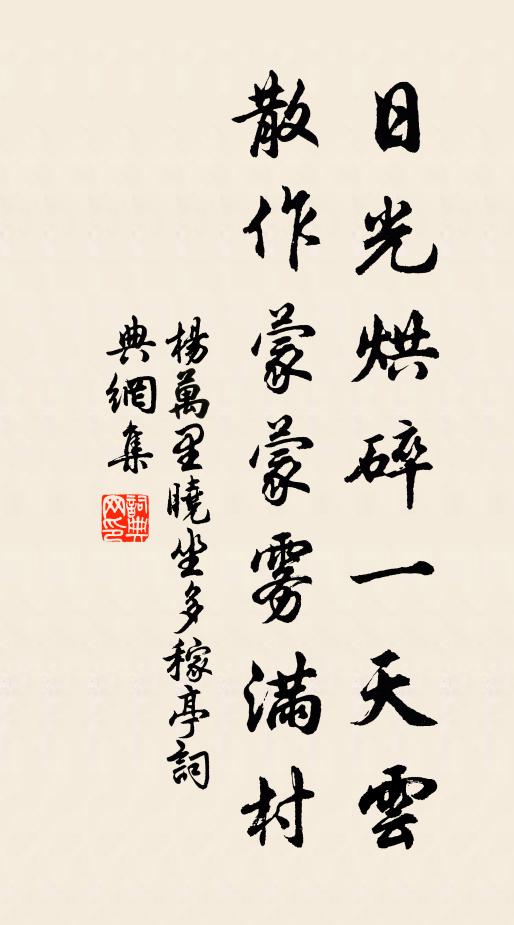 日光烘碎一天雲
散作蒙蒙雾滿村
楊萬里曉坐多稼亭詞
典網集
詞典网印